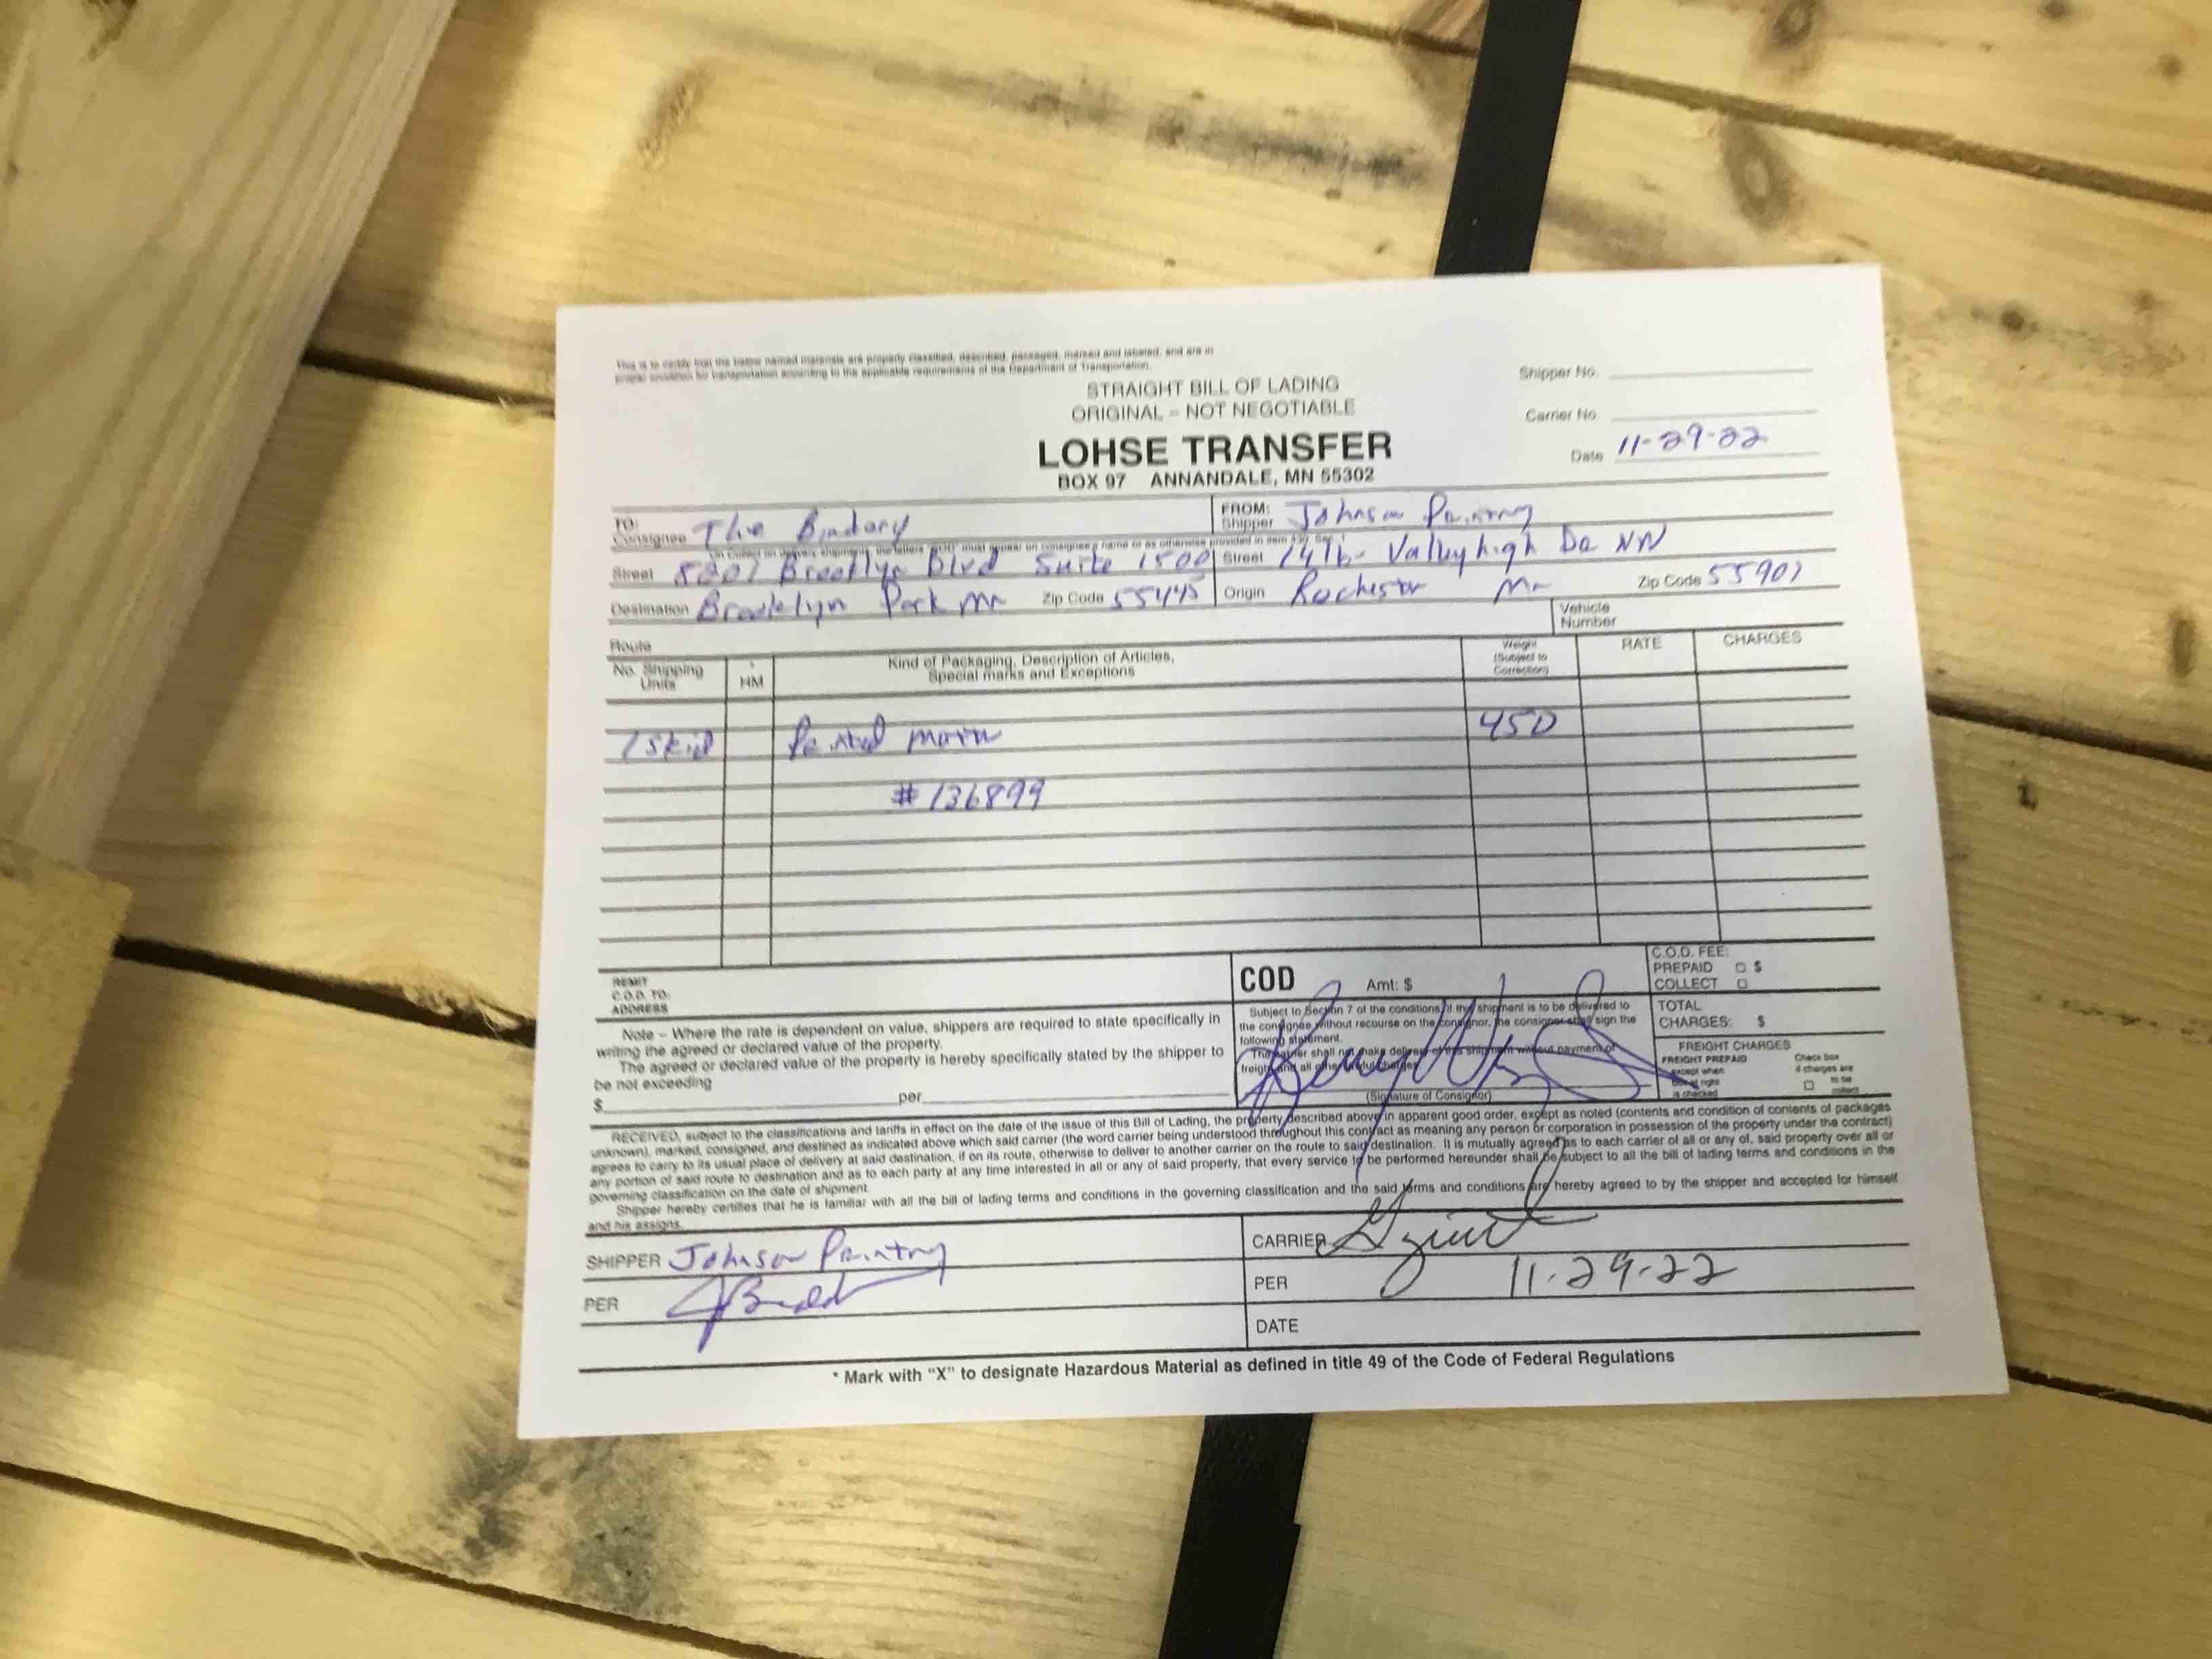 This is to certify that the below named materials are properly classified, described, packaged, marked and labeled, and are in
proper condition for transportation according to the applicable requirements of the Department of Transportation.
STRAIGHT BILL OF LADING
ORIGINAL – NOT NEGOTIABLE
LOHSE TRANSFER
BOX 97 ANNANDALE, MN 55302
Shipper No.
Carrier No.
Date 11-29-22
TO:
Consignee The Bindery
FROM:
Shipper Johnson Printing
Street 8201 Brooklyn Blvd Suite 1500
Street Valleyhigh Dr NW
Destination Brooklyn Park Mn Zip Code 55445
Origin Rochester Mn Zip Code 55901
Route
Vehicle
Number
No. Shipping
Units
*
HM
Kind of Packaging, Description of Articles,
Special marks and Exceptions
Weight
(Subject to
Correction)
RATE
CHARGES
1 Skid Printed 450
#136899
REMIT
C.O.D. TO:
ADDRESS
COD Amt: $
C.O.D. FEE:
PREPAID $
COLLECT
Note – Where the rate is dependent on value, shippers are required to state specifically in
writing the agreed or declared value of the property.
The agreed or declared value of the property is hereby specifically stated by the shipper to
be not exceeding
$ per
Subject to Section 7 of the conditions, if this shipment is to be delivered to
the consignee without recourse on the consignor, the consignor shall sign the
following statement.
The carrier shall not make delivery of this shipment without payment of
freight and all other lawful charges.
(Signature of Consignor)
TOTAL
CHARGES: $
FREIGHT CHARGES
FREIGHT PREPAID
except when
box at right
is checked
Check box
if charges are
to be
collect
RECEIVED, subject to the classifications and tariffs in effect on the date of the issue of this Bill of Lading, the property described above in apparent good order, except as noted (contents and condition of contents of packages
unknown), marked, consigned, and destined as indicated above which said carrier (the word carrier being understood throughout this contract as meaning any person or corporation in possession of the property under the contract)
agrees to carry to its usual place of delivery at said destination, if on its route, otherwise to deliver to another carrier on the route to said destination. It is mutually agreed as to each carrier of all or any of, said property over all or
any portion of said route to destination and as to each party at any time interested in all or any of said property, that every service to be performed hereunder shall be subject to all the bill of lading terms and conditions in the
governing classification on the date of shipment.
Shipper hereby certifies that he is familiar with all the bill of lading terms and conditions in the governing classification and the said terms and conditions are hereby agreed to by the shipper and accepted for himself
and his assigns.
SHIPPER Johnson Printing
CARRIER
PER
PER 11-29-22
DATE
* Mark with "X" to designate Hazardous Material as defined in title 49 of the Code of Federal Regulations